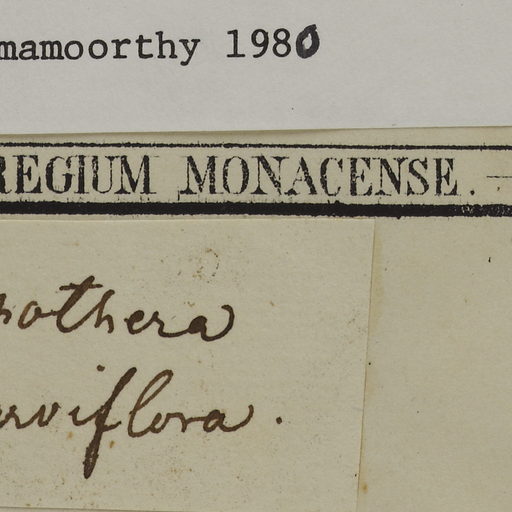 mamoorthy 1980
REGIUM MONACENSE.
nothera
arviflora.